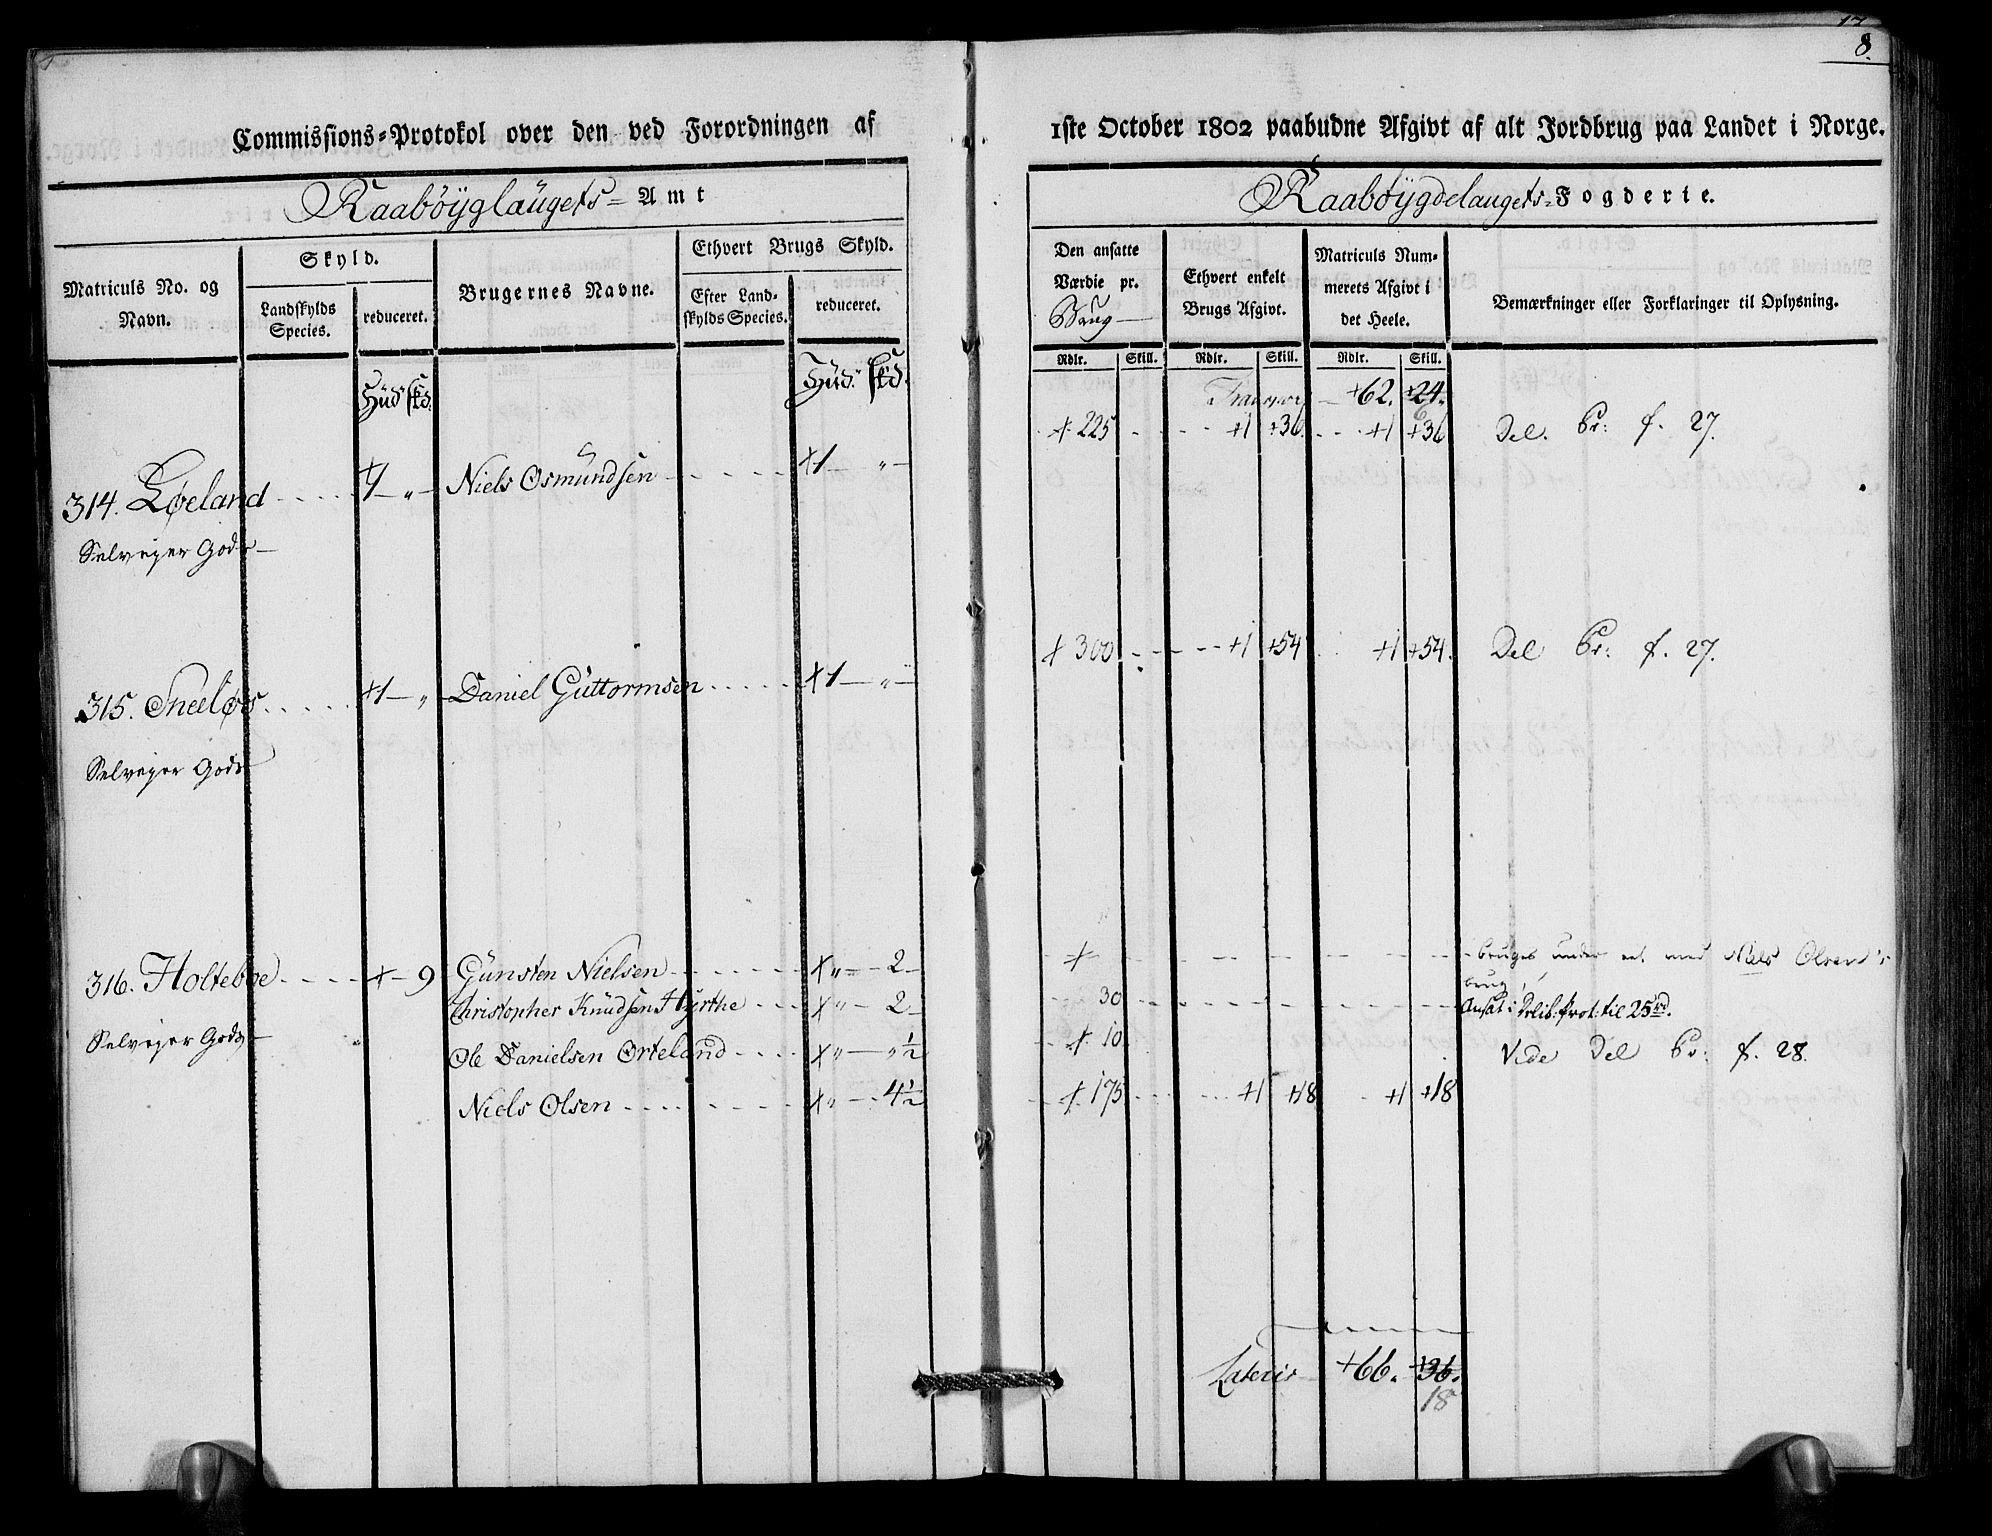 17
8.
Commissions=Protokol over den ved Forordningen af
1ste October 1802 paabudne Afgivt af alt Jordbrug paa Landet i Norge.
Raabøyglaugets= Amt
Raabøygdelaugets= Fogderie.
Matriculs No. og Navn.
Skyld.
Landskylds Species.
reduceret.
Brugernes Navne.
Ethvert Brugs Skyld.
Efter Landskylds Species.
reduceret.
Den ansatte Værdie pr. Brug
Ethvert enkelt Brugs Afgivt.
Matriculs Nummerets Afgivt i det Heele.
Bemærkninger eller Forklaringer til Oplysning.
Rdlr. Skill. Rdlr. Skill. Rdlr. Skill.
Hüd. skd. Hüd. skd.
+62. +24.
6
314. Løeland +1 — " — Niels Osmundsen +1 — " — + 225 +1 +36 +1 +36 Del. Pr: f. 27.
Selvejer Gods
315. Sneeløs +1 — " — Daniel Guttormsen +1 — " — + 300 +1 +54 +1 +54. Del Pr: f. 27.
Selvejer Gods
316. Holteboe + — 9 Günsten Nielsen + " — 2 — + bruges under et med Niels Olsens brug
Christopher Knudsen Hyrthe + " — 2 — 30 Ansat i Delib: prot: til 25 rd.
Selvejer Gods
Ole Danielsen Orteland + " — " ½ + 10 Vide Del Pr: f. 28.
Niels Olsen + " — 4½ + 175 +1 +18 +1 +18
Lateris +66. +36.
18